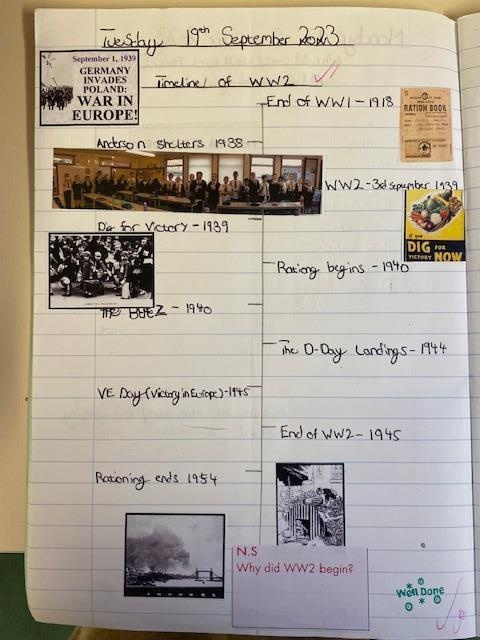 Tuesday 19th September 2023
September 1, 1939
GERMANY
INVADES
POLAND:
WAR IN
EUROPE!
Timeline of WW2
End of WW1 - 1918
RATION BOOK
Anderson shelters 1938
WW2 - 3rd september 1939
Dig for Victory - 1939
DIG FOR
VICTORY NOW
Rationg begins - 1940
The Blitz - 1940
The D-Day Landings - 1944
VE Day (Victory in Europe) - 1945
End of WW2 - 1945
Rationing ends 1954
N.S
Why did WW2 begin?
Well Done